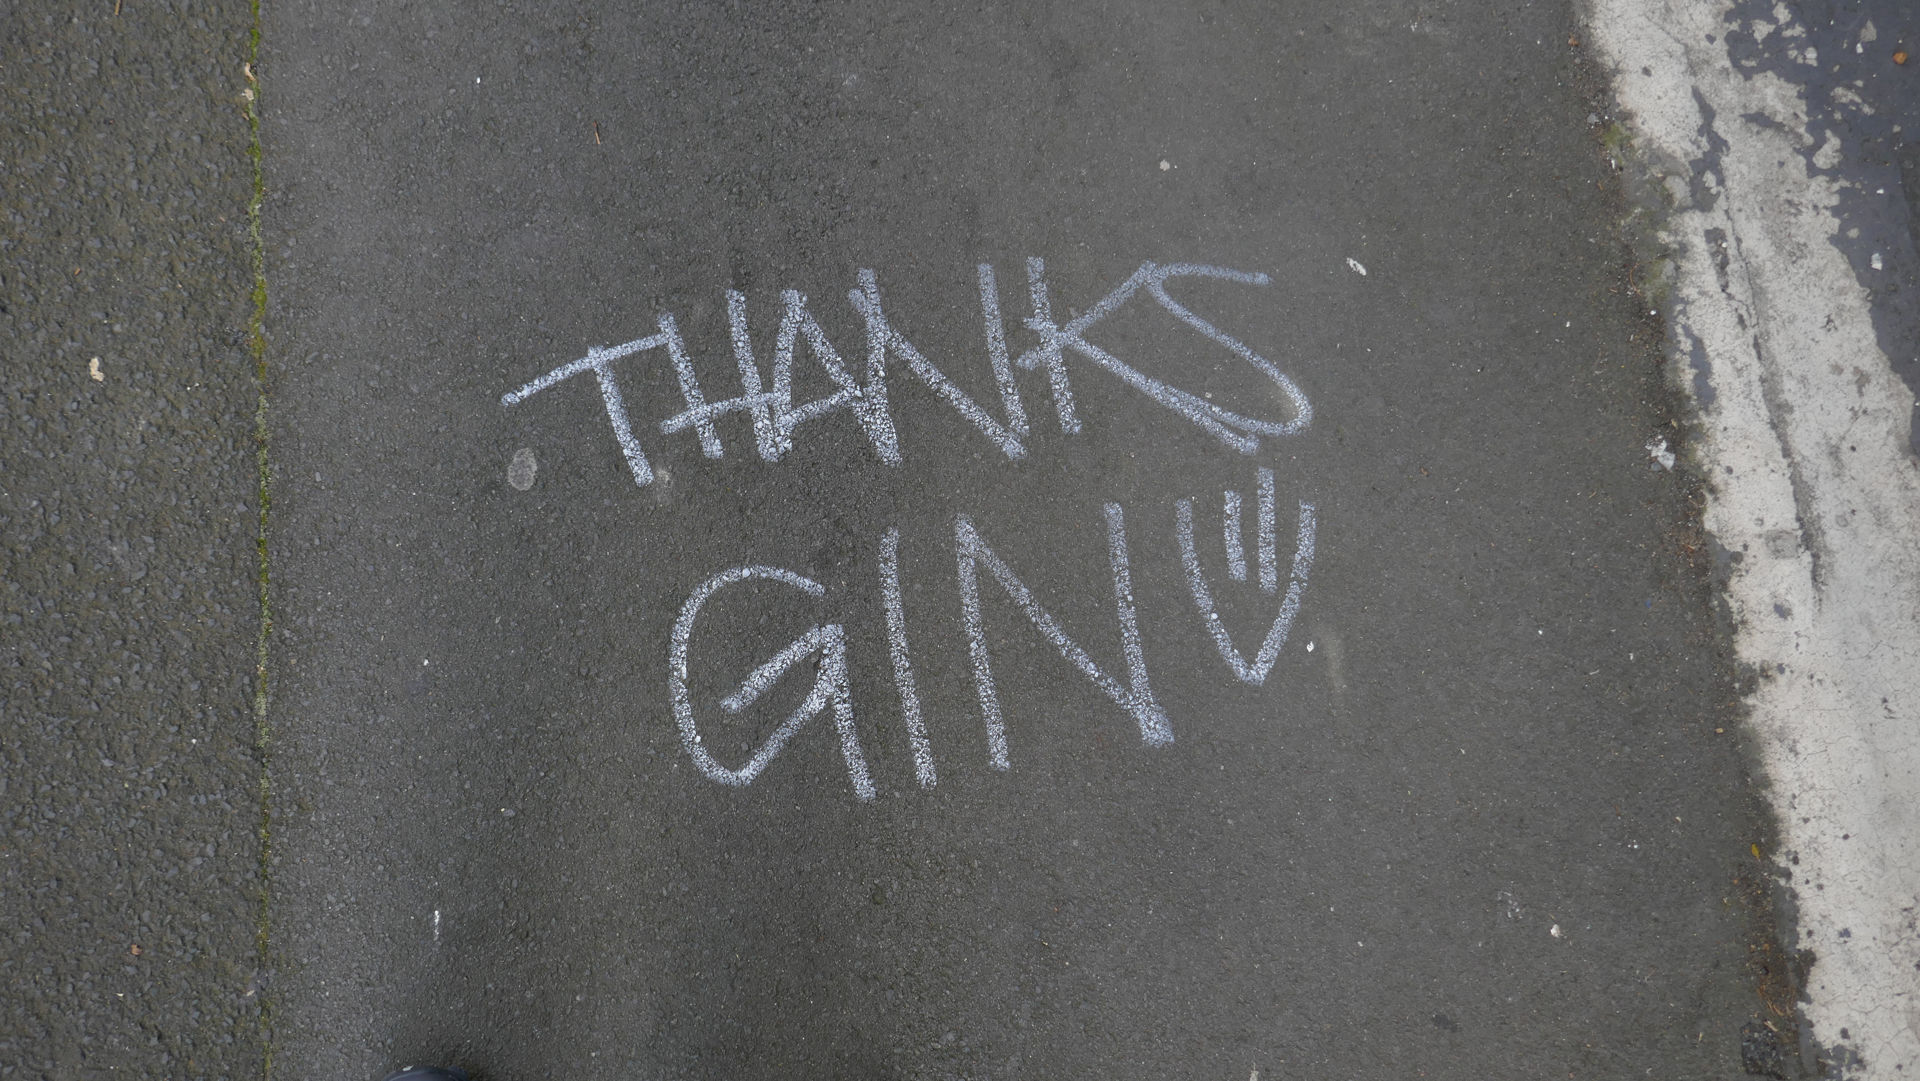 THANKS
GIN